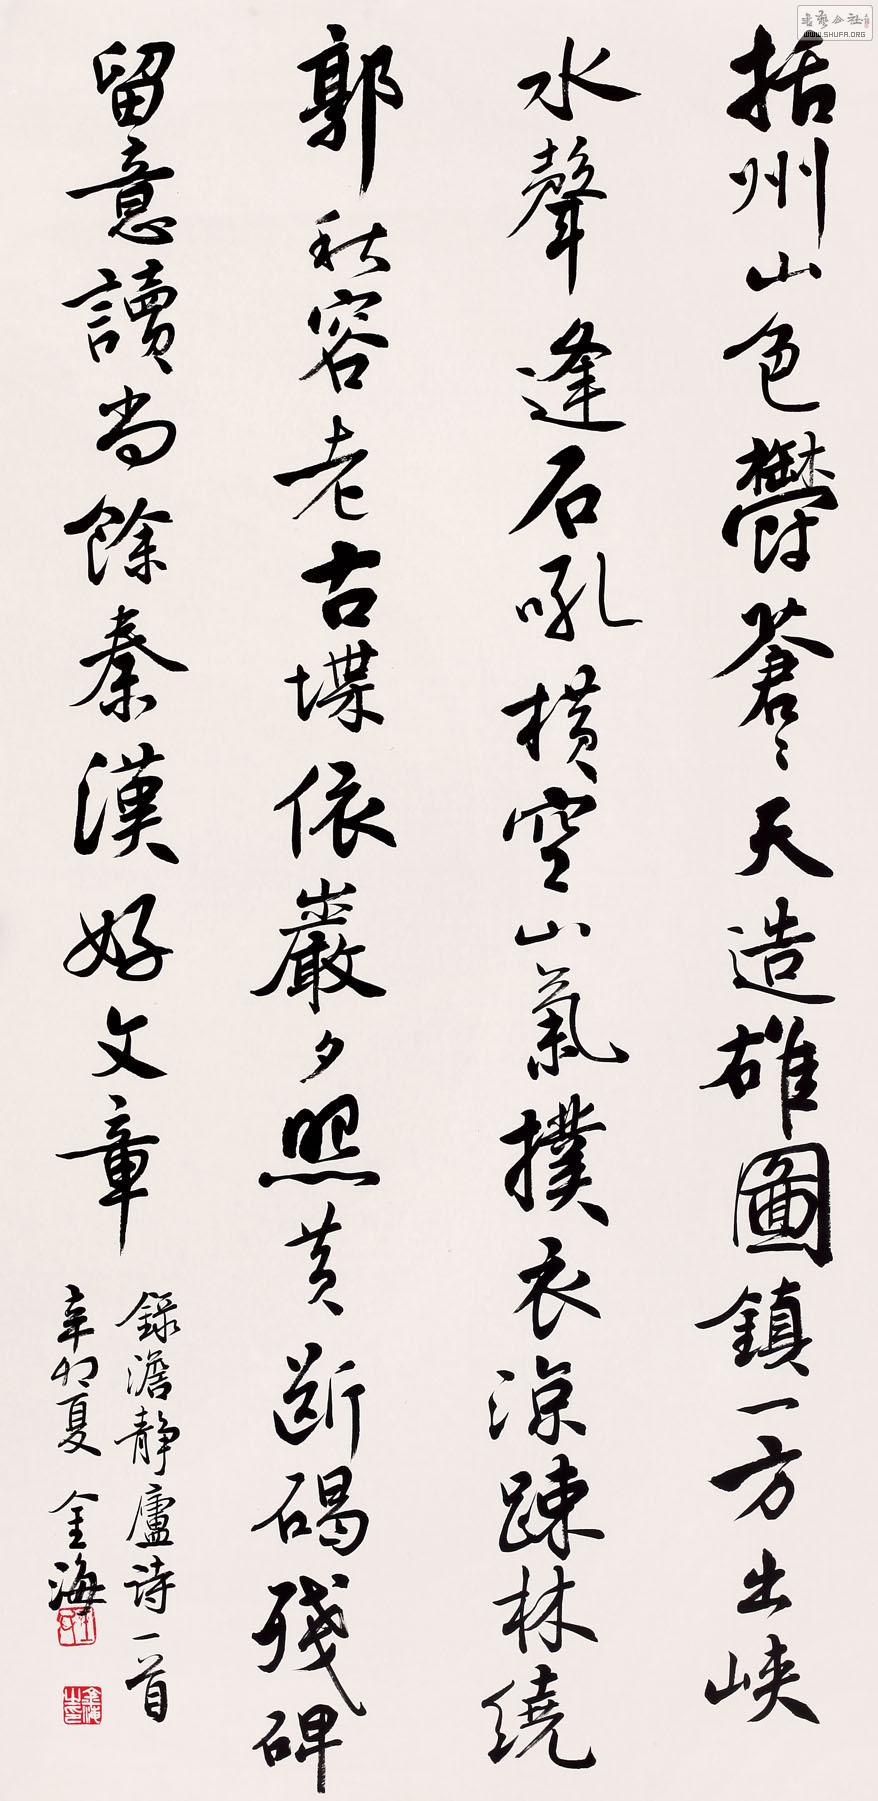 括州山色鬱蒼々天造雄圖鎮一方出峽
水聲逢石吼橫空山氣撲衣涼疎林繞
郭秋容老古堞依巖夕照黄斷碣殘碑
留意讀尚餘秦漢好文章
錄澹靜廬诗一首
辛卯夏 金海
WWW.SHUFA.ORG